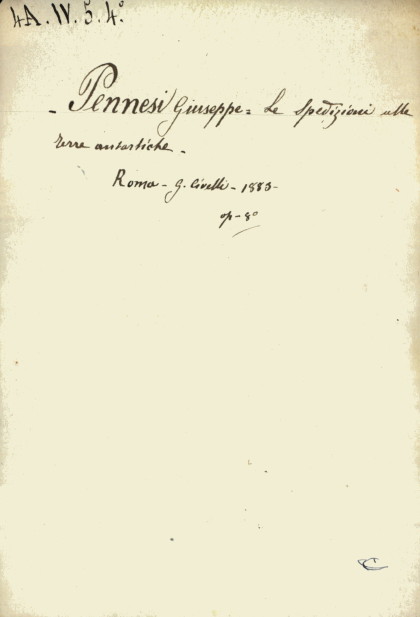 4A.IV.5.4°.
- Pennesi Giuseppe = Le Spedizioni alle
terre antartiche -
Roma - G. Civelli - 1883 -
op - 8°
C